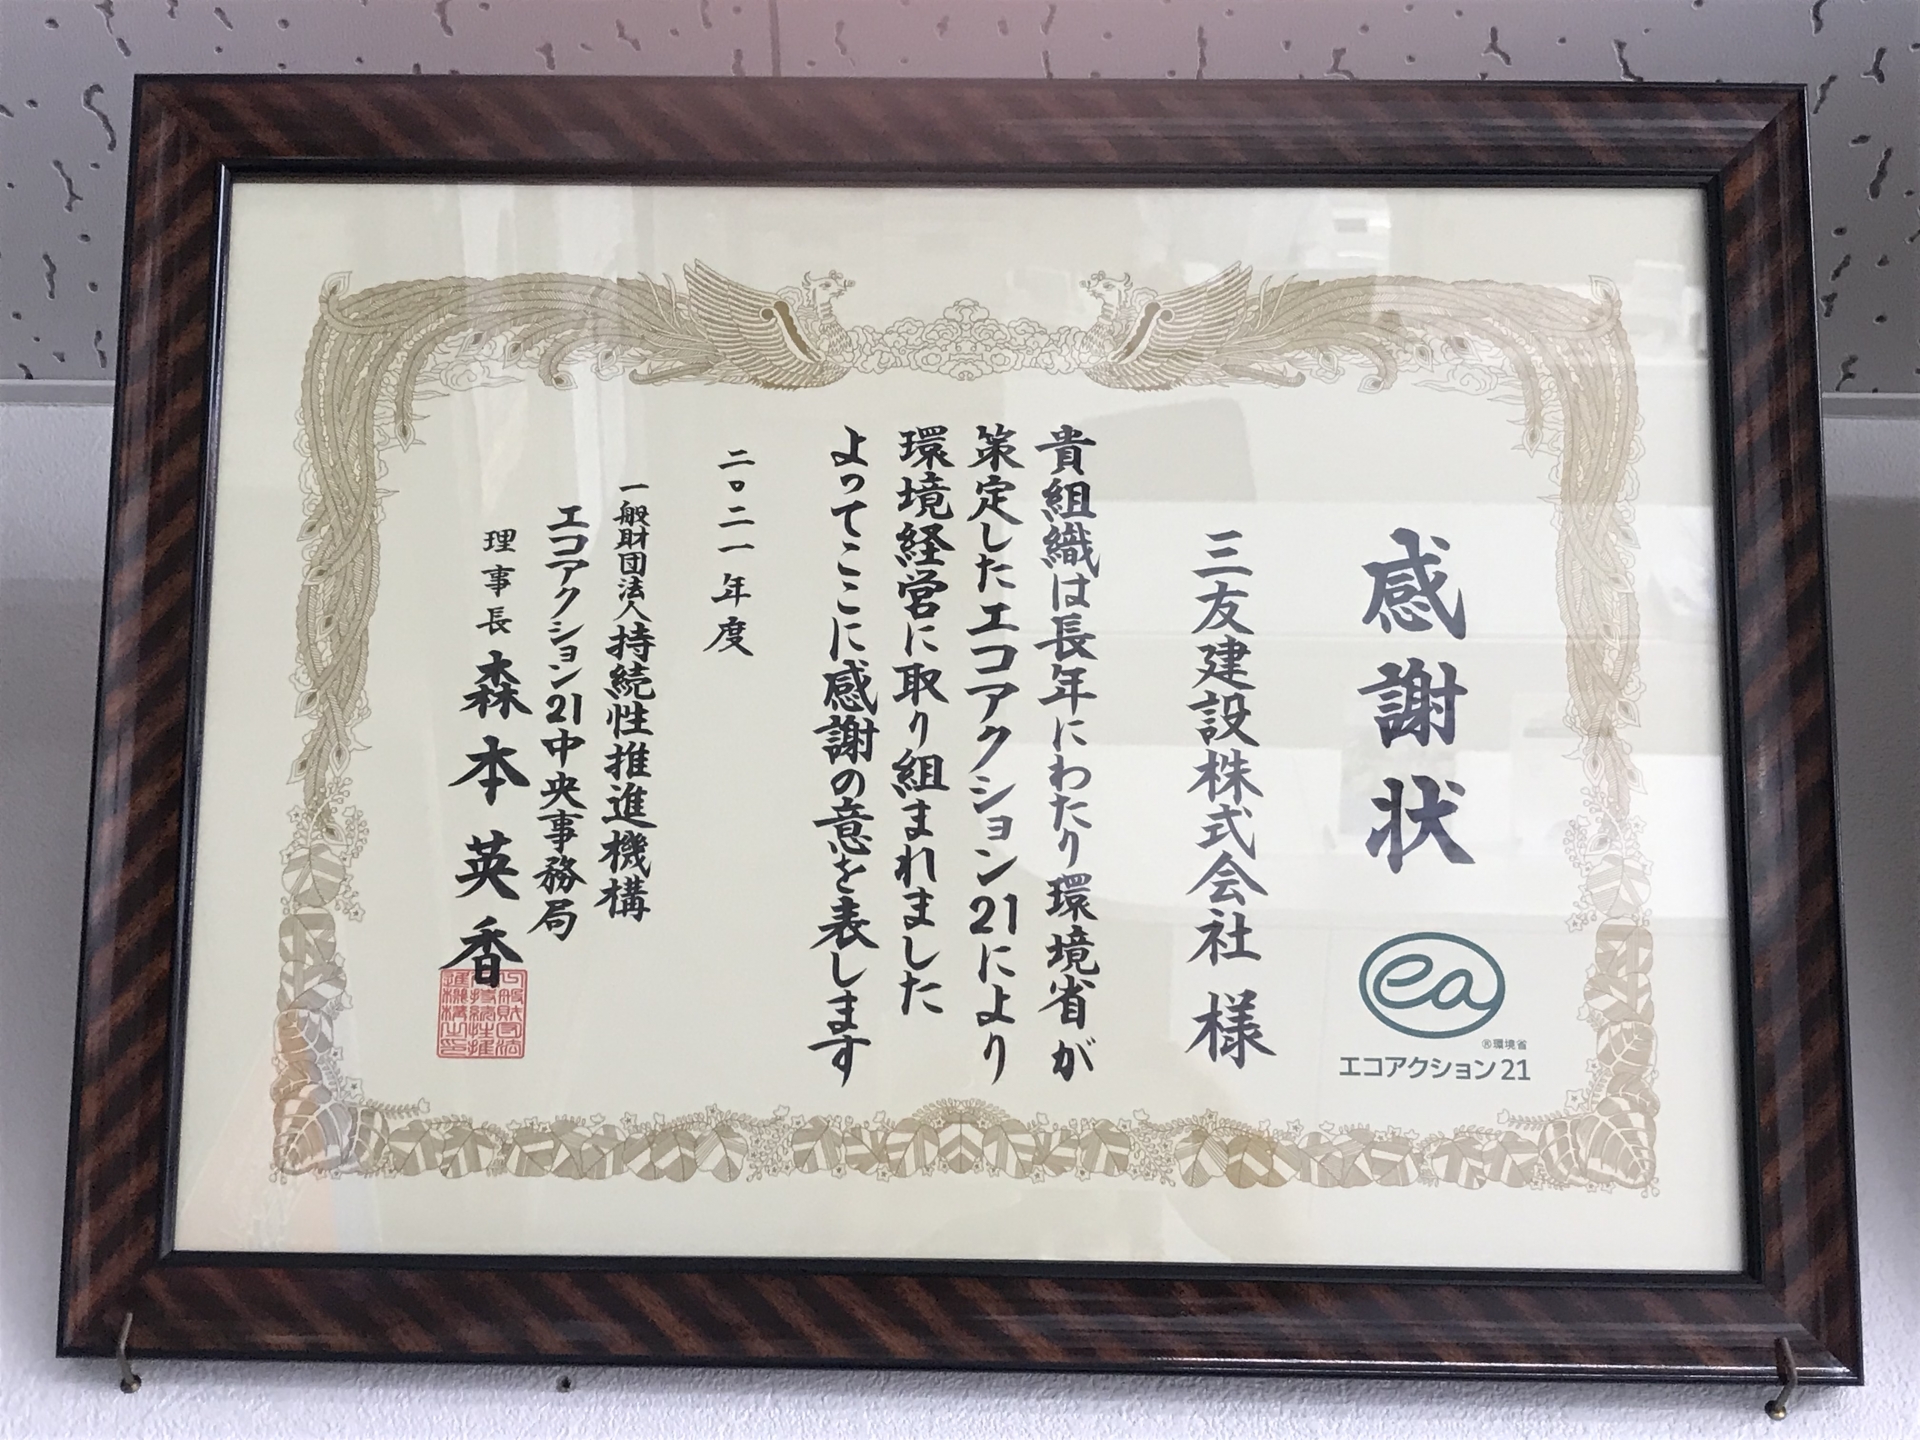 感謝状
ea
®環境省
エコアクション21
三友建設株式会社 様
貴組織は長年にわたり環境省が
策定したエコアクション21により
環境経営に取り組まれました
よってここに感謝の意を表します
二〇二一年度
一般財団法人持続性推進機構
エコアクション21中央事務局
理事長 森本英香